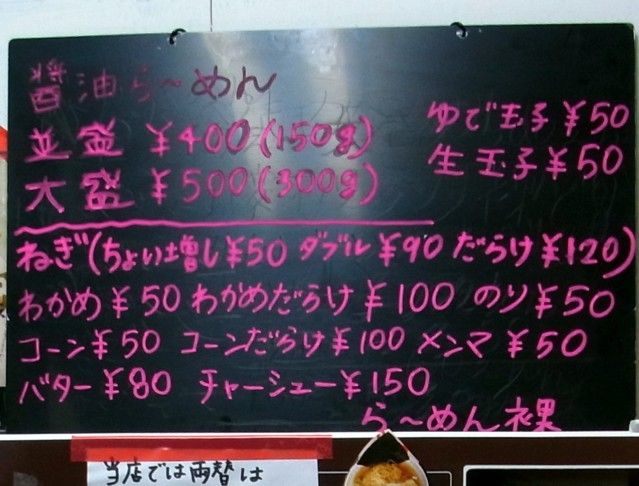 醤油ら〜めん
並盛 ¥400(150g)
大盛 ¥500(300g)
ゆで玉子¥50
生玉子¥50
ねぎ(ちょい増し¥50 ダブル¥90 だらけ¥120)
わかめ¥50 わかめだらけ¥100 のり¥50
コーン¥50 コーンだらけ¥100 メンマ¥50
バター¥80 チャーシュー¥150
ら〜めん裸
当店では両替は